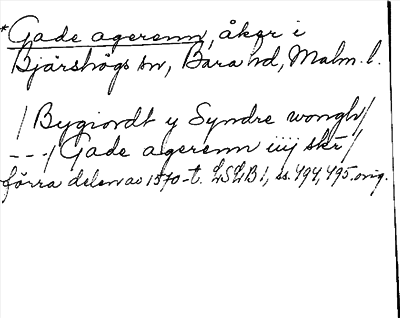 *Gade agerenn, åker i
Bjärshögs sn, Bara hd, Malm. l.
/ Bygiordt y Syndre wongh/
---/ Gade agerenn iiij skr̄ /
förra delen av 1570-t. LSLB 1, ss. 494, 495. orig.